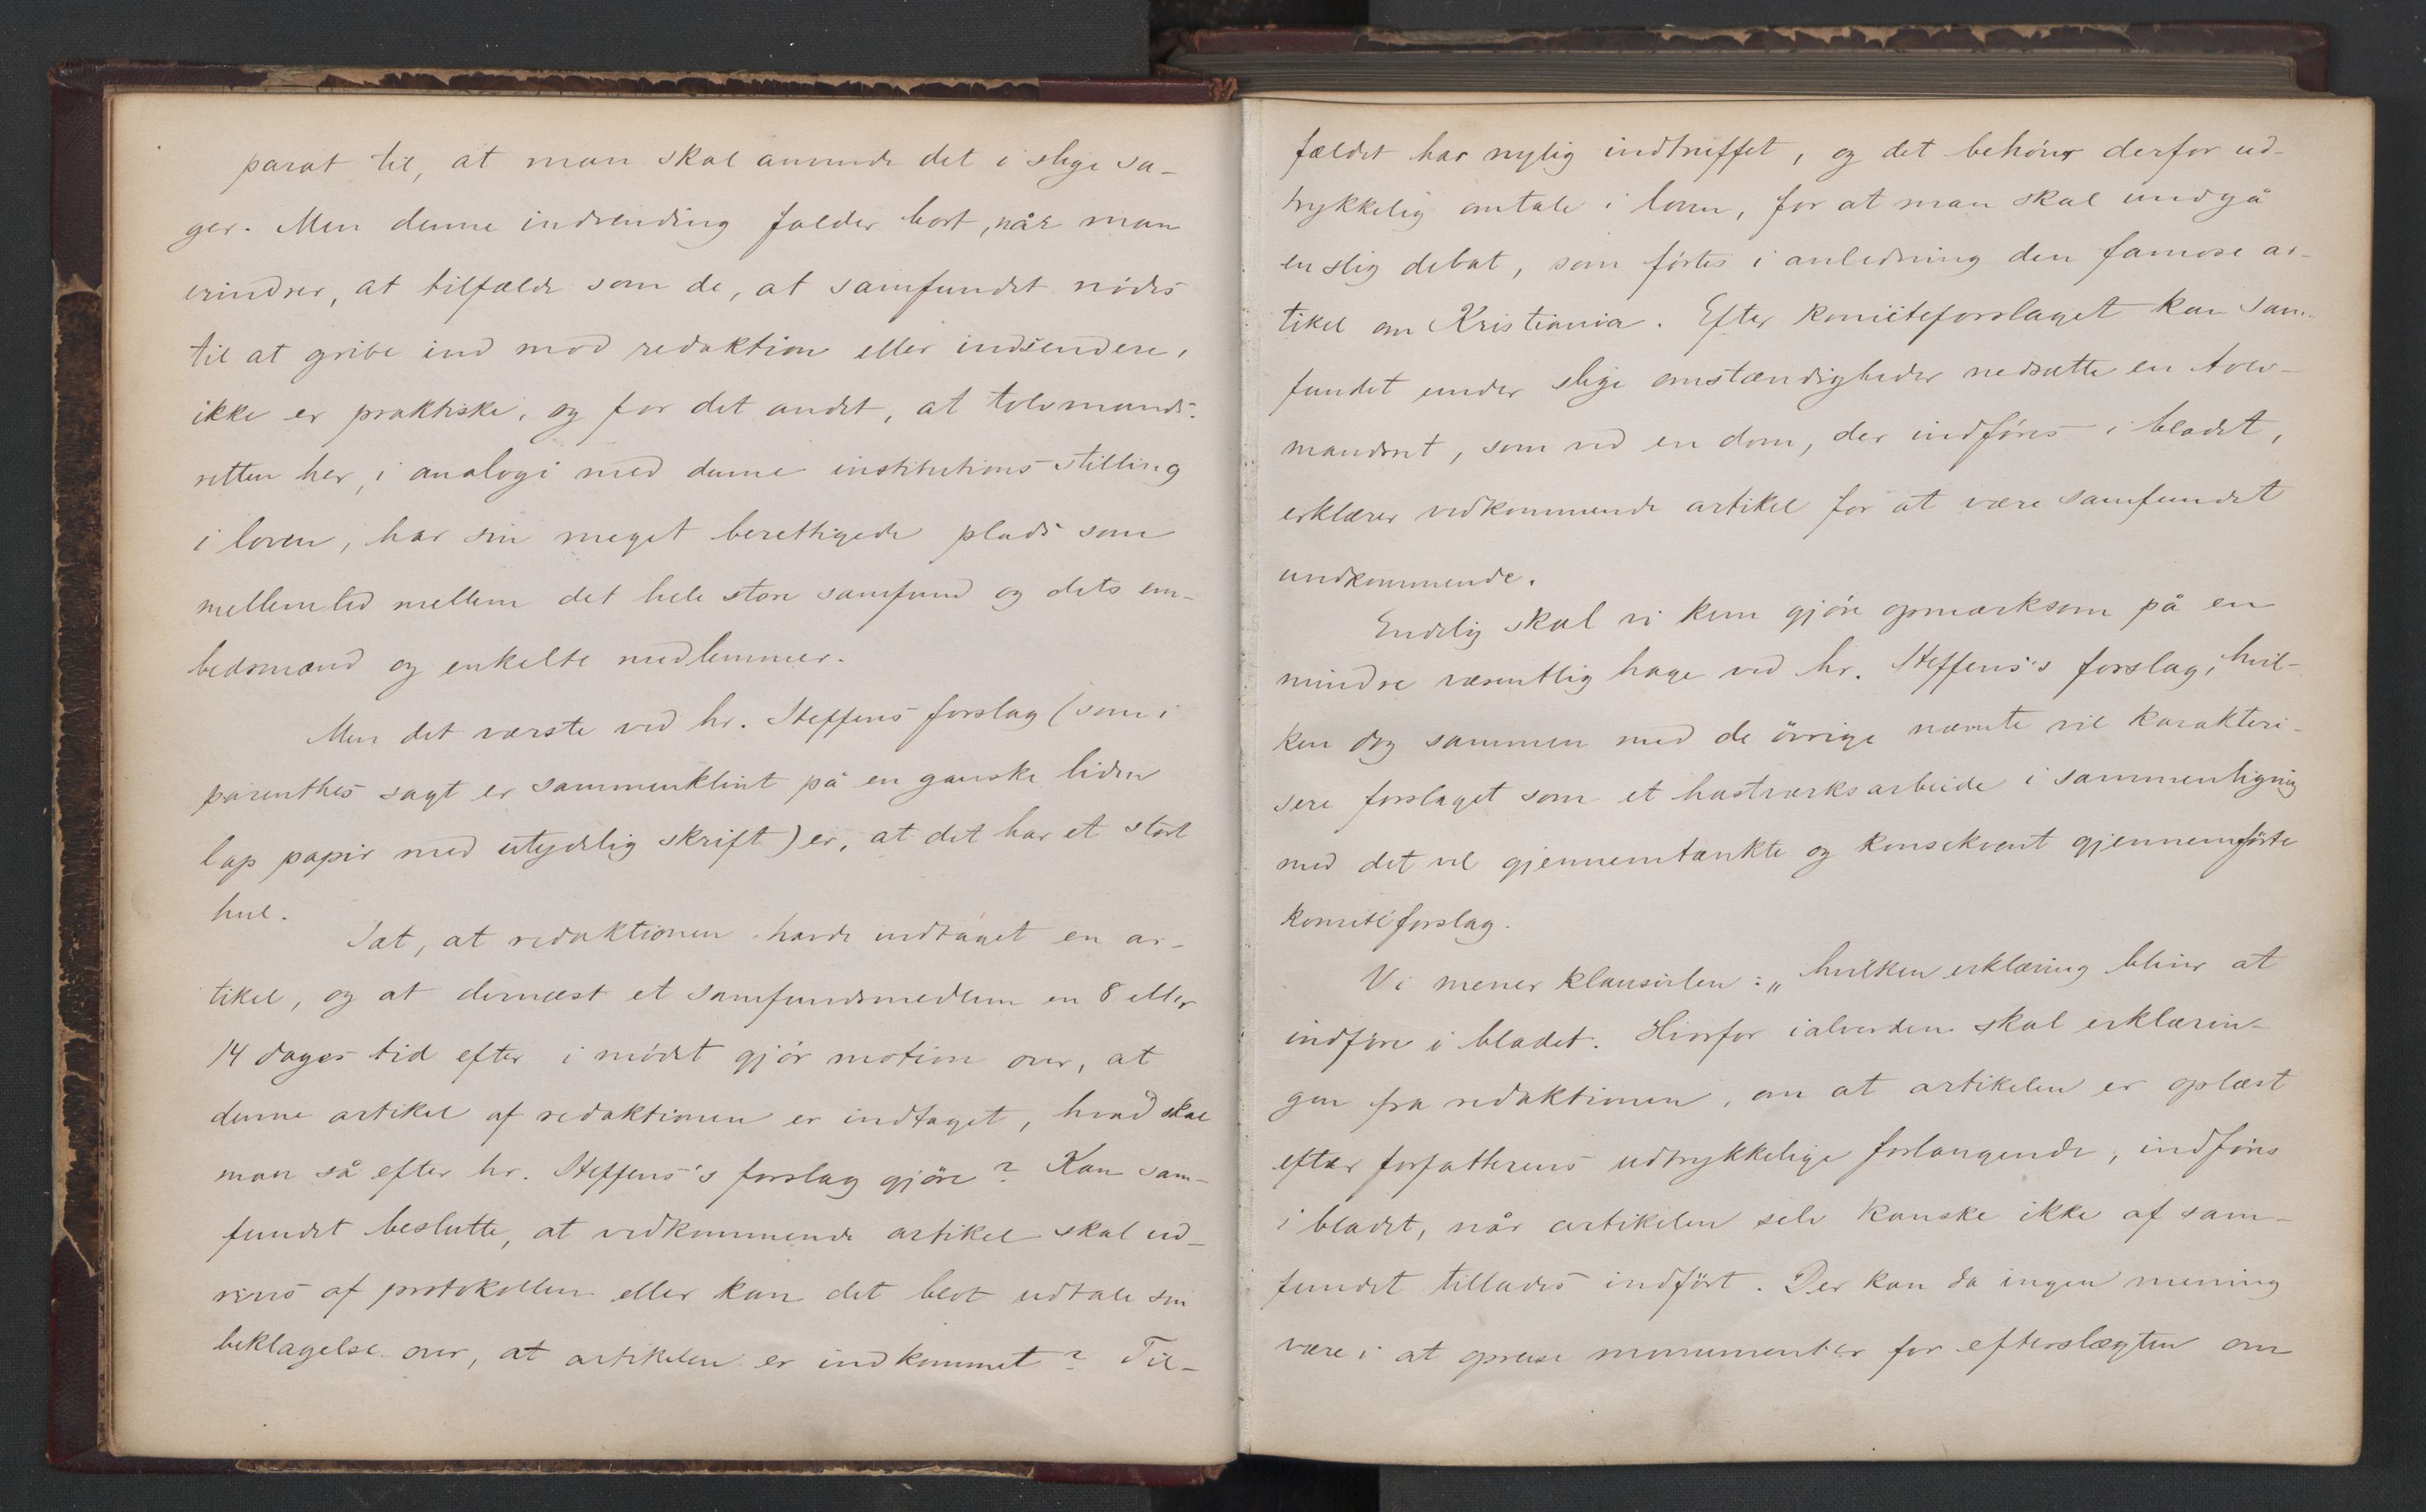 parat til, at man skal anvende det i slige sa-
ger. Men denne indvending falder bort, når man
erindrer, at tilfælde som de, at samfundet nødes
til at gribe ind mod redaktion eller indsendere,
ikke er praktiske, og for det andet, at tolvmands-
retten her, i analogi med denne institutions stilling
i loven, har sin meget berettigede plads som
mellemled mellem det hele store samfund og dets em-
bedsmænd og enkelte medlemmer.
Men det værste ved hr. Steffens forslag (som i
parenthes sagt er sammenklint på en ganske liden
lap papir med utydelig skrift) er, at det har et stort
hul.
Sæt, at redaktionen havde indtaget en ar-
tikel, og at dernæst et samfundsmedlem en 8 eller
14 dages tid efter i mødet gjør motion over, at
denne artikel af redaktionen er indtaget, hvad skal
man så efter hr. Steffens's forslag gjöre? Kan sam-
fundet beslutte, at vedkommende artikel skal ud-
rives af protokollen eller kan det blot udtale sin
beklagelse over, at artikelen er indkommet? Til-
fældet har nylig indtruffet, og det behöver derfor ud-
trykkelig omtale i loven, for at man skal undgå
en slig debat, som førtes i anledning den famose ar-
tikel om Kristiania. Efter komiteforslaget kan sam-
fundet under slige omstændigheder nedsætte en tolv-
mandsret, som ved en dom, der indføres i bladet,
erklærer vedkommende artikel for at være samfundet
uvedkommende.
Endelig skal vi kun gjöre opmærksom på en
mindre væsentlig hage ved hr. Steffens's forslag, hvil-
ken dog sammen med de övrige nævnte vil karakteri-
sere forslaget som et hastværksarbeide i sammenligning
med det vel gjennemtænkte og konsekvent gjennemførte
komitéforslag.
Vi mener klausulen: „hvilken erklæring bliver at
indføre i bladet. Hvorfor ialverden skal erklærin-
gen fra redaktionen, om at artikelen er oplæst
efter forfatterens udtrykkelige forlangende, indføres
i bladet, når artikelen selv kanske ikke af sam-
fundet tillades indført. Der kan da ingen mening
være i at opreise monumenter for efterslægten om